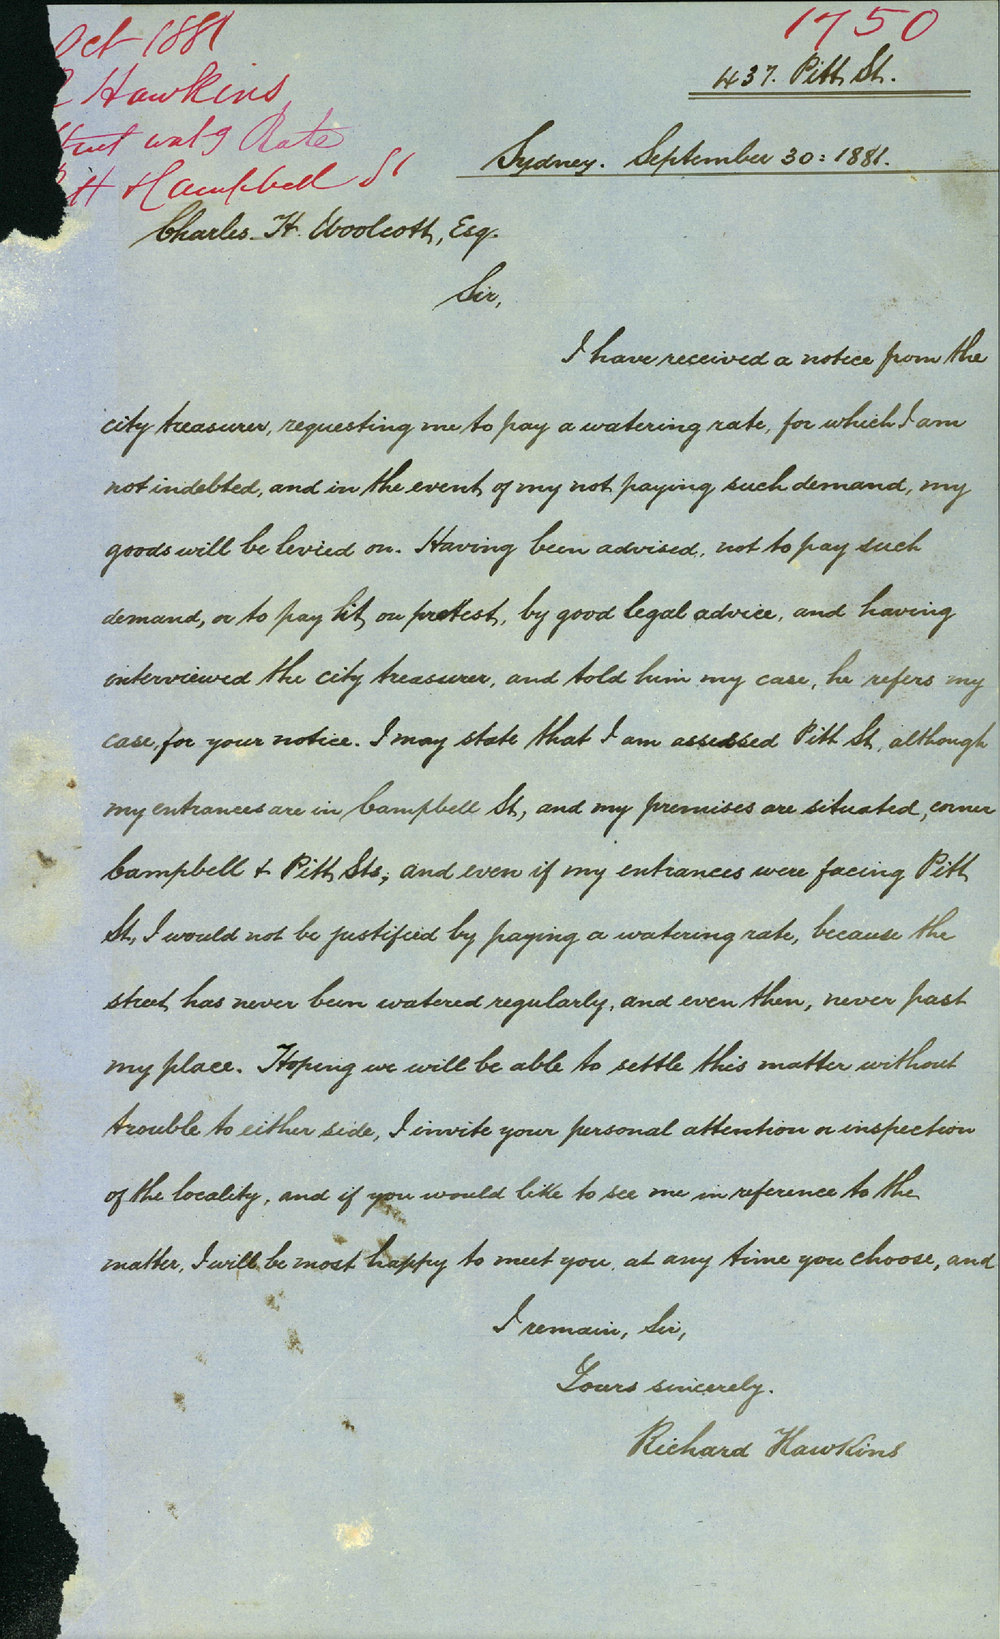 Oct 1881
Hawkins
Street wat'g Rate
Pitt & Campbell St
1750
437. Pitt St.
Sydney. September 30: 1881.
Charles. H. Woolcott, Esq.
Sir,
I have received a notice from the
city treasurer, requesting me to pay a watering rate, for which I am
not indebted, and in the event of my not paying such demand, my
goods will be levied on. Having been advised, not to pay such
demand, or to pay it on protest, by good legal advice, and having
interviewed the city treasurer, and told him my case, he refers my
case, for your notice. I may state that I am assessed Pitt St, although
my entrances are in Campbell St, and my premises are situated, corner
Campbell & Pitt Sts; and even if my entrances were facing Pitt
St, I would not be justified by paying a watering rate, because the
street has never been watered regularly, and even then, never past
my place. Hoping we will be able to settle this matter without
trouble to either side, I invite your personal attention or inspection
of the locality, and if you would like to see me in reference to the
matter, I will be most happy to meet you, at any time you choose, and
I remain, Sir,
Yours sincerely.
Richard Hawkins